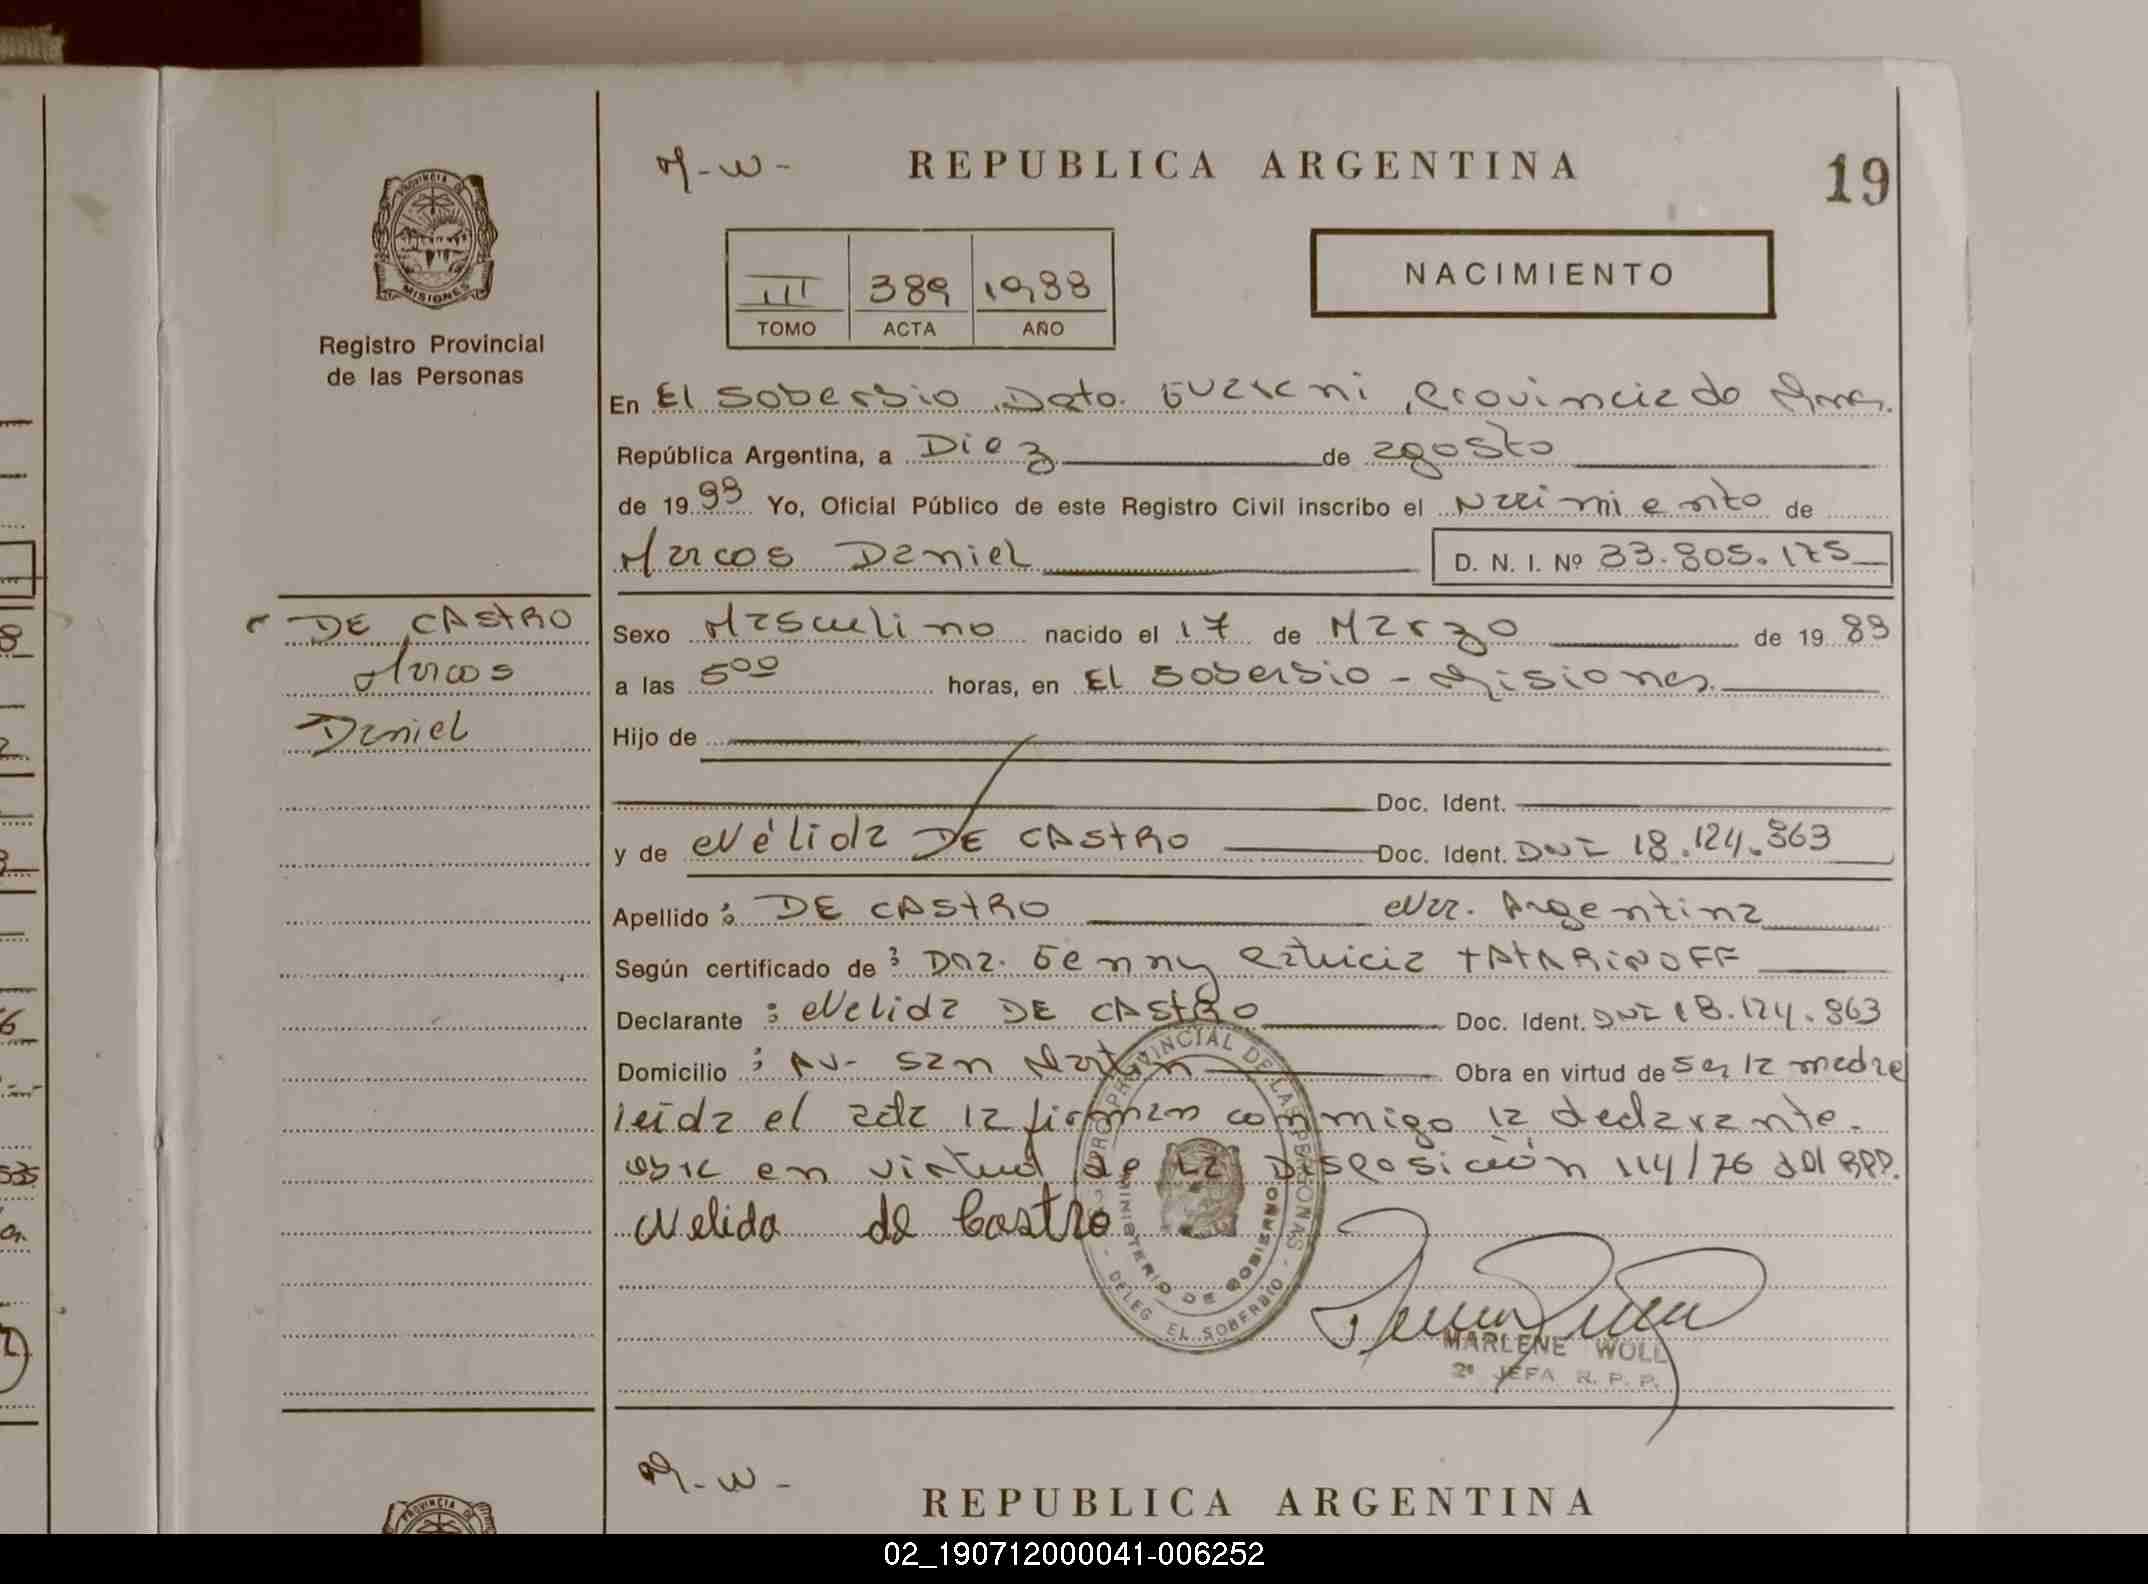 M-W-
REPUBLICA ARGENTINA
19
PROVINCIA DE
MISIONES
Registro Provincial
de las Personas
III 389 1988
TOMO ACTA AÑO
NACIMIENTO
En El Soberbio Dpto. Guarani, Provincia de Mnes.
República Argentina, a Diez de agosto
de 19 88 Yo, Oficial Público de este Registro Civil inscribo el Nacimiento de
Marcos Daniel D. N. I. Nº 33.805.175
DE CASTRO
Marcos
Daniel
Sexo Masculino nacido el 17 de Marzo de 19 88
a las 5 00 horas, en El Soberbio - Misiones.
Hijo de
Doc. Ident.
y de Nélida DE CASTRO Doc. Ident. DNI 18.124.863
Apellido : DE CASTRO Nac. Argentina
Según certificado de : Dra. Genny Patricia TATARINOFF
Declarante : Nelida DE CASTRO Doc. Ident. DNI 18.124.863
Domicilio : AV- San Martin Obra en virtud de ser la madre
leida el acta la firman conmigo la declarante.
obra en virtud de la Disposición 114/76 del RPP.
Nelida de Castro
REGISTRO PROVINCIAL DE LAS PERSONAS
MINISTERIO DE GOBIERNO
- DELEG EL SOBERBIO -
MARLENE WOLL
2ª JEFA R. P. P.
M-W-
REPUBLICA ARGENTINA
PROVINCIA DE
02_190712000041-006252